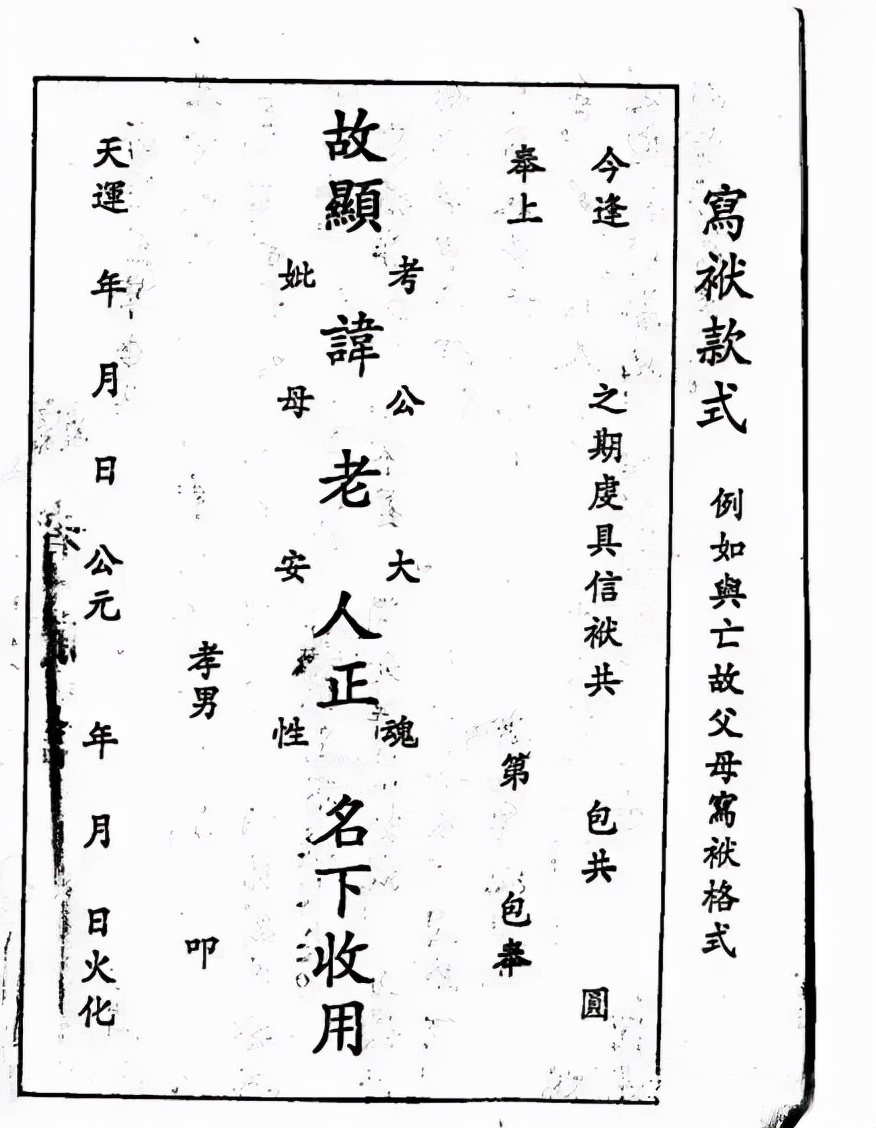 寫袱款式 例如與亡故父母寫袱格式
今逢 之期虔具信袱共 包共 圓
奉上 第 包奉
考 公 大 魂
故顯 諱 老 人正 名下收用
妣 母 安 性
孝男 叩
天運 年 月 日 公元 年 月 日火化